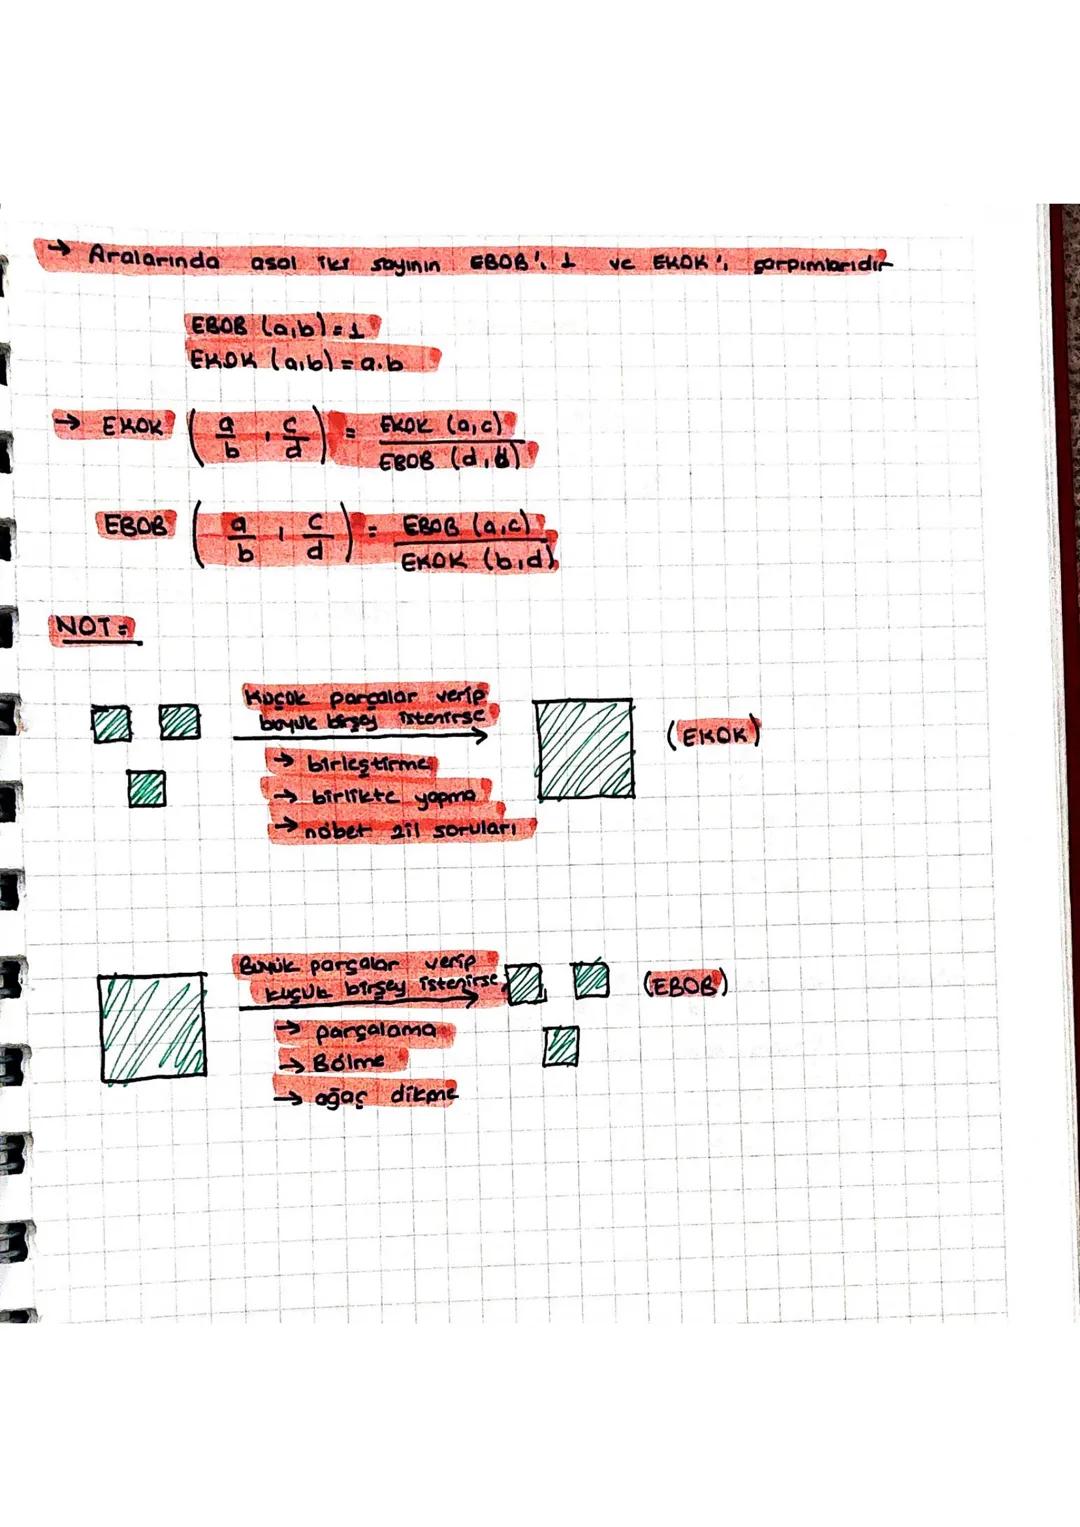 → Aralarında asal iki sayının EBOB'ı 1 ve EKOK'ı çarpımlarıdır
EBOB (a,b) = 1
EKOK (a,b) = a.b
→ EKOK (a/b , c/d) = EKOK (a,c) / EBOB (d,b)
EBOB (a/b , c/d) = EBOB (a,c) / EKOK (b,d)
NOT =
Küçük parçalar verip
büyük birşey istenirse
(EKOK)
→ birleştirme
→ birlikte yapma
→ nöbet zil soruları
Büyük parçalar verip
küçük birşey istenirse
(EBOB)
→ parçalama
→ Bölme
→ ağaç dikme